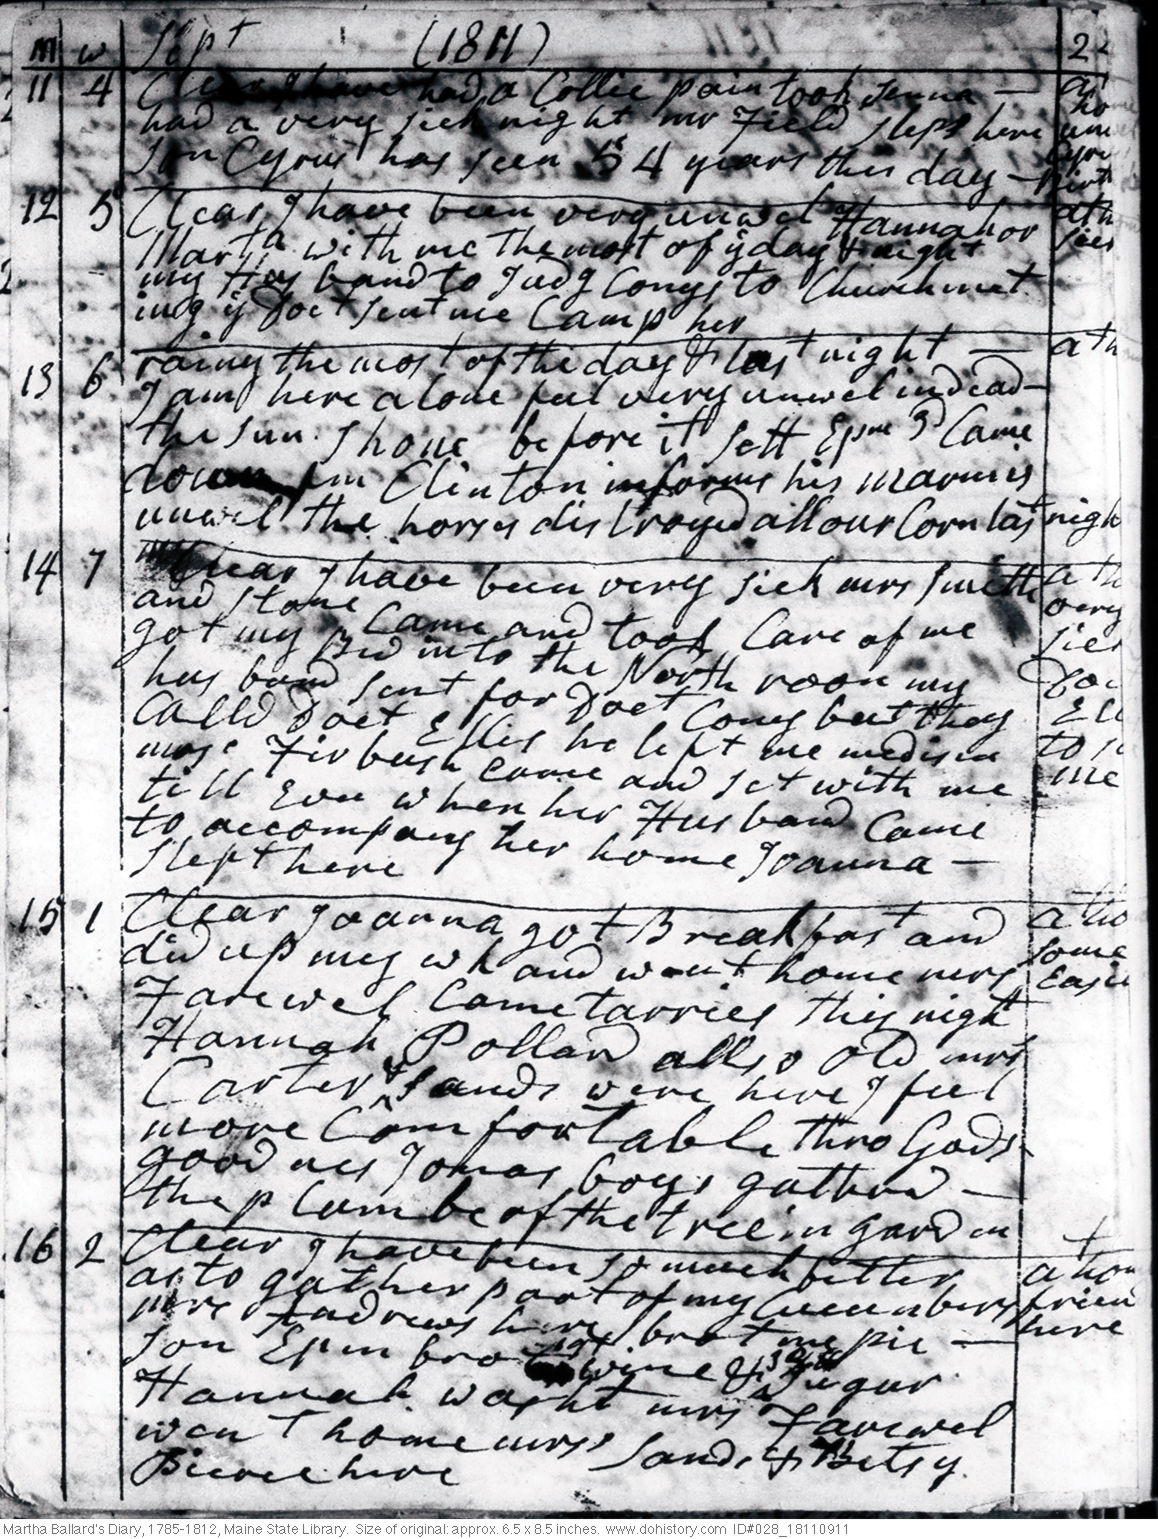 m w Sept (1811) 2
11 4 Clear I have had a Collic pain took senna —
had a very sick night mr Field sleps here
son Cyrus has seen 54 years this day —
12 5 Clear, I have been very unwel Hannah or
Marta with me the most of ye day & night
my Husband to Judg Conys to Church meet
ing ye Doct sent me Camp her
13 6 rainy the most of the day & last night — at h
I am here alone feel very unwel indead —
the sun shone before it sett Epm 3d Came
down fm Clinton informs his marm is
unwel the horses distroyed all our Corn last nigh
14 7 Clear I have been very sick mrs Smith
and Stone Came and took Care of me
got my Bed into the North room my
husband sent for Doct Cony but they
Calld Doct Elles he left me medisin
mrs Firbush came and set with me
till Evn when her Husband Came
to accompany her home Joanna —
slept here
at h
very
sick
Doc
Ell
to s
me
15 1 Clear Joanna got Breakfast and
did up my wk and went home mrs
Farewel Came tarries this night
Hannah Pollard allso old mrs
Carter & Sands were here I feel
more Comfortable thro Gods
goodnes Jonas boys gatherd —
the plumbe of the tree in garden
at ho
some
Easie
16 2 Clear I have been so much better
as to gather part of my Cucumbers
mrs Andrews here brot me pie —
son Epm brot wine & Sugar
Hannah washt mrs Farewel
went home mrs Sands & Betsy
Pierce here
+
a hom
frien
here
Martha Ballard's Diary, 1785-1812, Maine State Library. Size of original: approx. 6.5 x 8.5 inches. www.dohistory.com ID#028_18110911